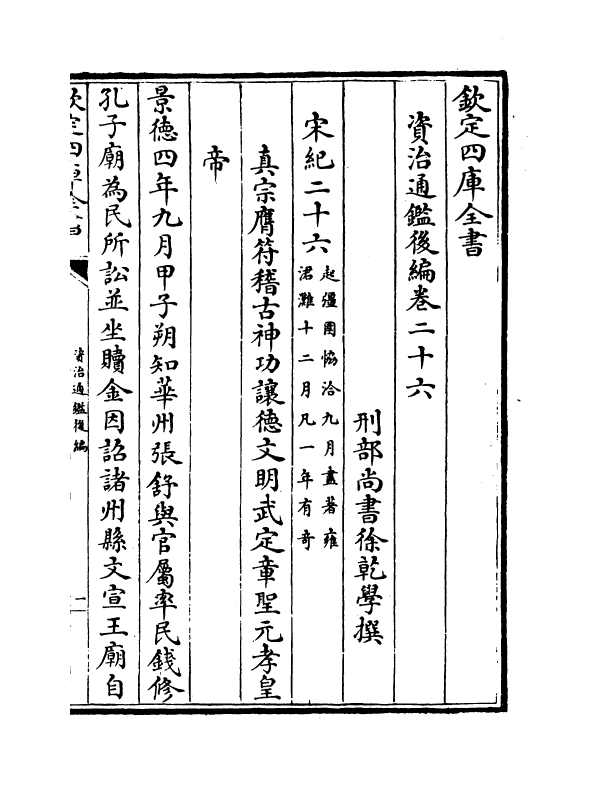 欽定四庫全書
資治通鑑後編卷二十六
刑部尚書徐乾學撰
宋紀二十六起彊圉協洽九月盡著雍
涒灘十二月凡一年有奇
真宗膺符稽古神功讓德文明武定章聖元孝皇
帝
景德四年九月甲子朔知華州張舒與官屬率民錢修
孔子廟為民所訟並坐贖金因詔諸州縣文宣王廟自
欽定四庫全書
資治通鑑後編
一